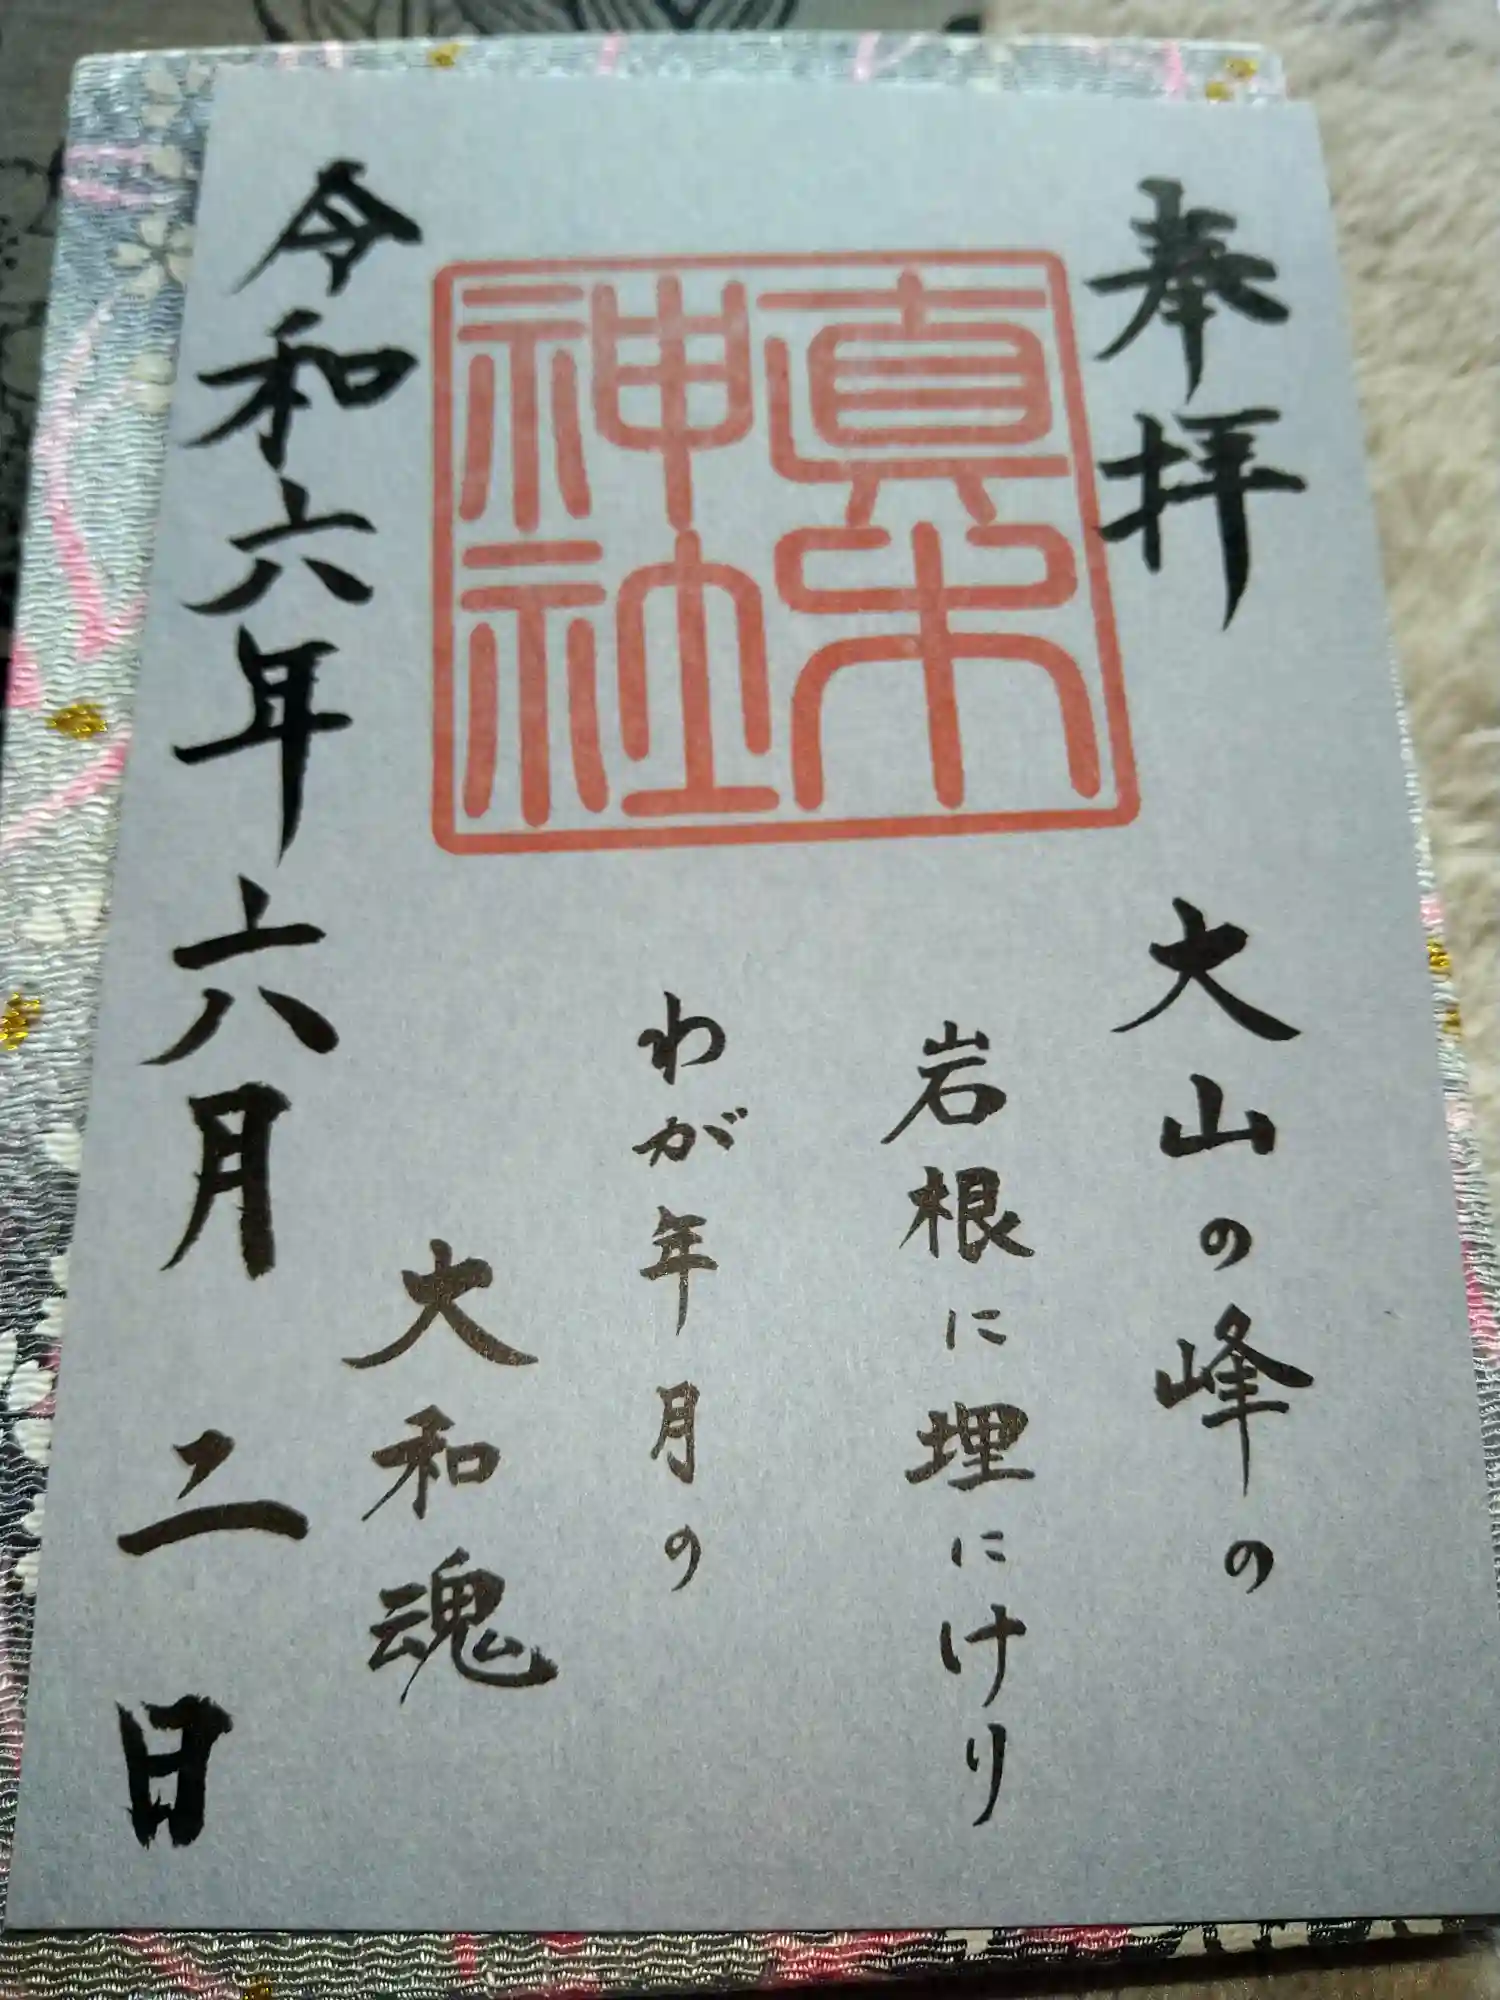 奉拝
大山の峰の
岩根に埋にけり
わが年月の
大和魂
真木
神社
令和六年六月二日